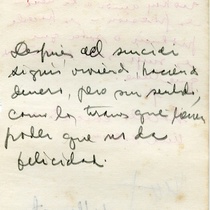 Despues del suicidi
siguió viviendo, haciend
dinero, pero sin sentido,
como los tiranos que tienen
poder que no da
felicidad.